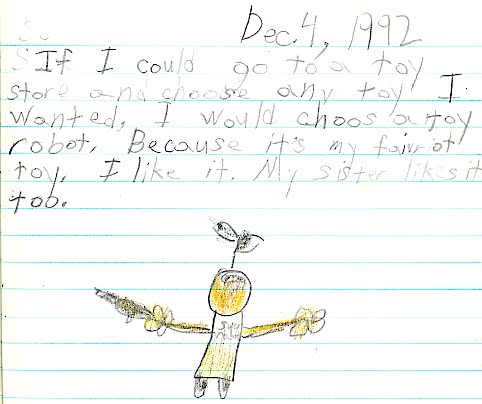 Dec. 4, 1992
If I could go to a toy
store and choose any toy I
wanted, I would choos a toy
robot. Because it's my faivriot
toy. I like it. My sister likes it
too.